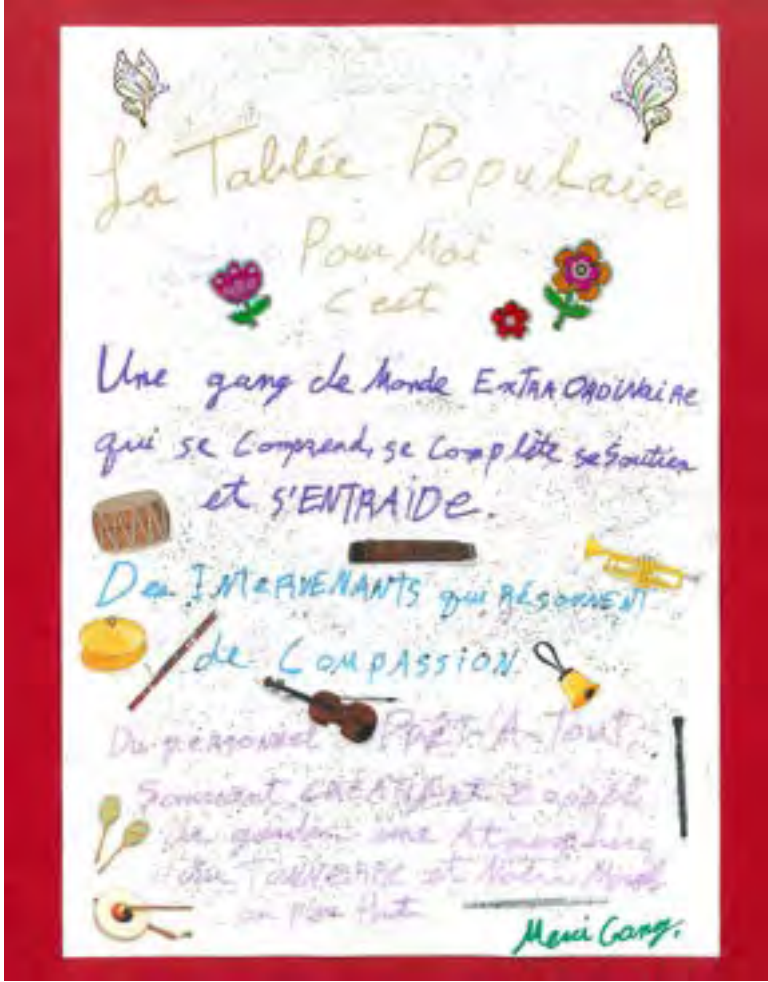 La Tablée Populaire
Pour Moi
c'est
Une gang de Monde ExTRAORDiNaiRE
qui se Comprend, se Complète se Soutien
et S'ENTRAiDe.
Des INTeRVENANTS qui RÉSONNENT
de COMPASSION
Du personnel PRÊT-A-Tout,
Souriant, CRÉATif
de une Atmosphère
et Notre Moral
au plus Haut
Merci Gang.